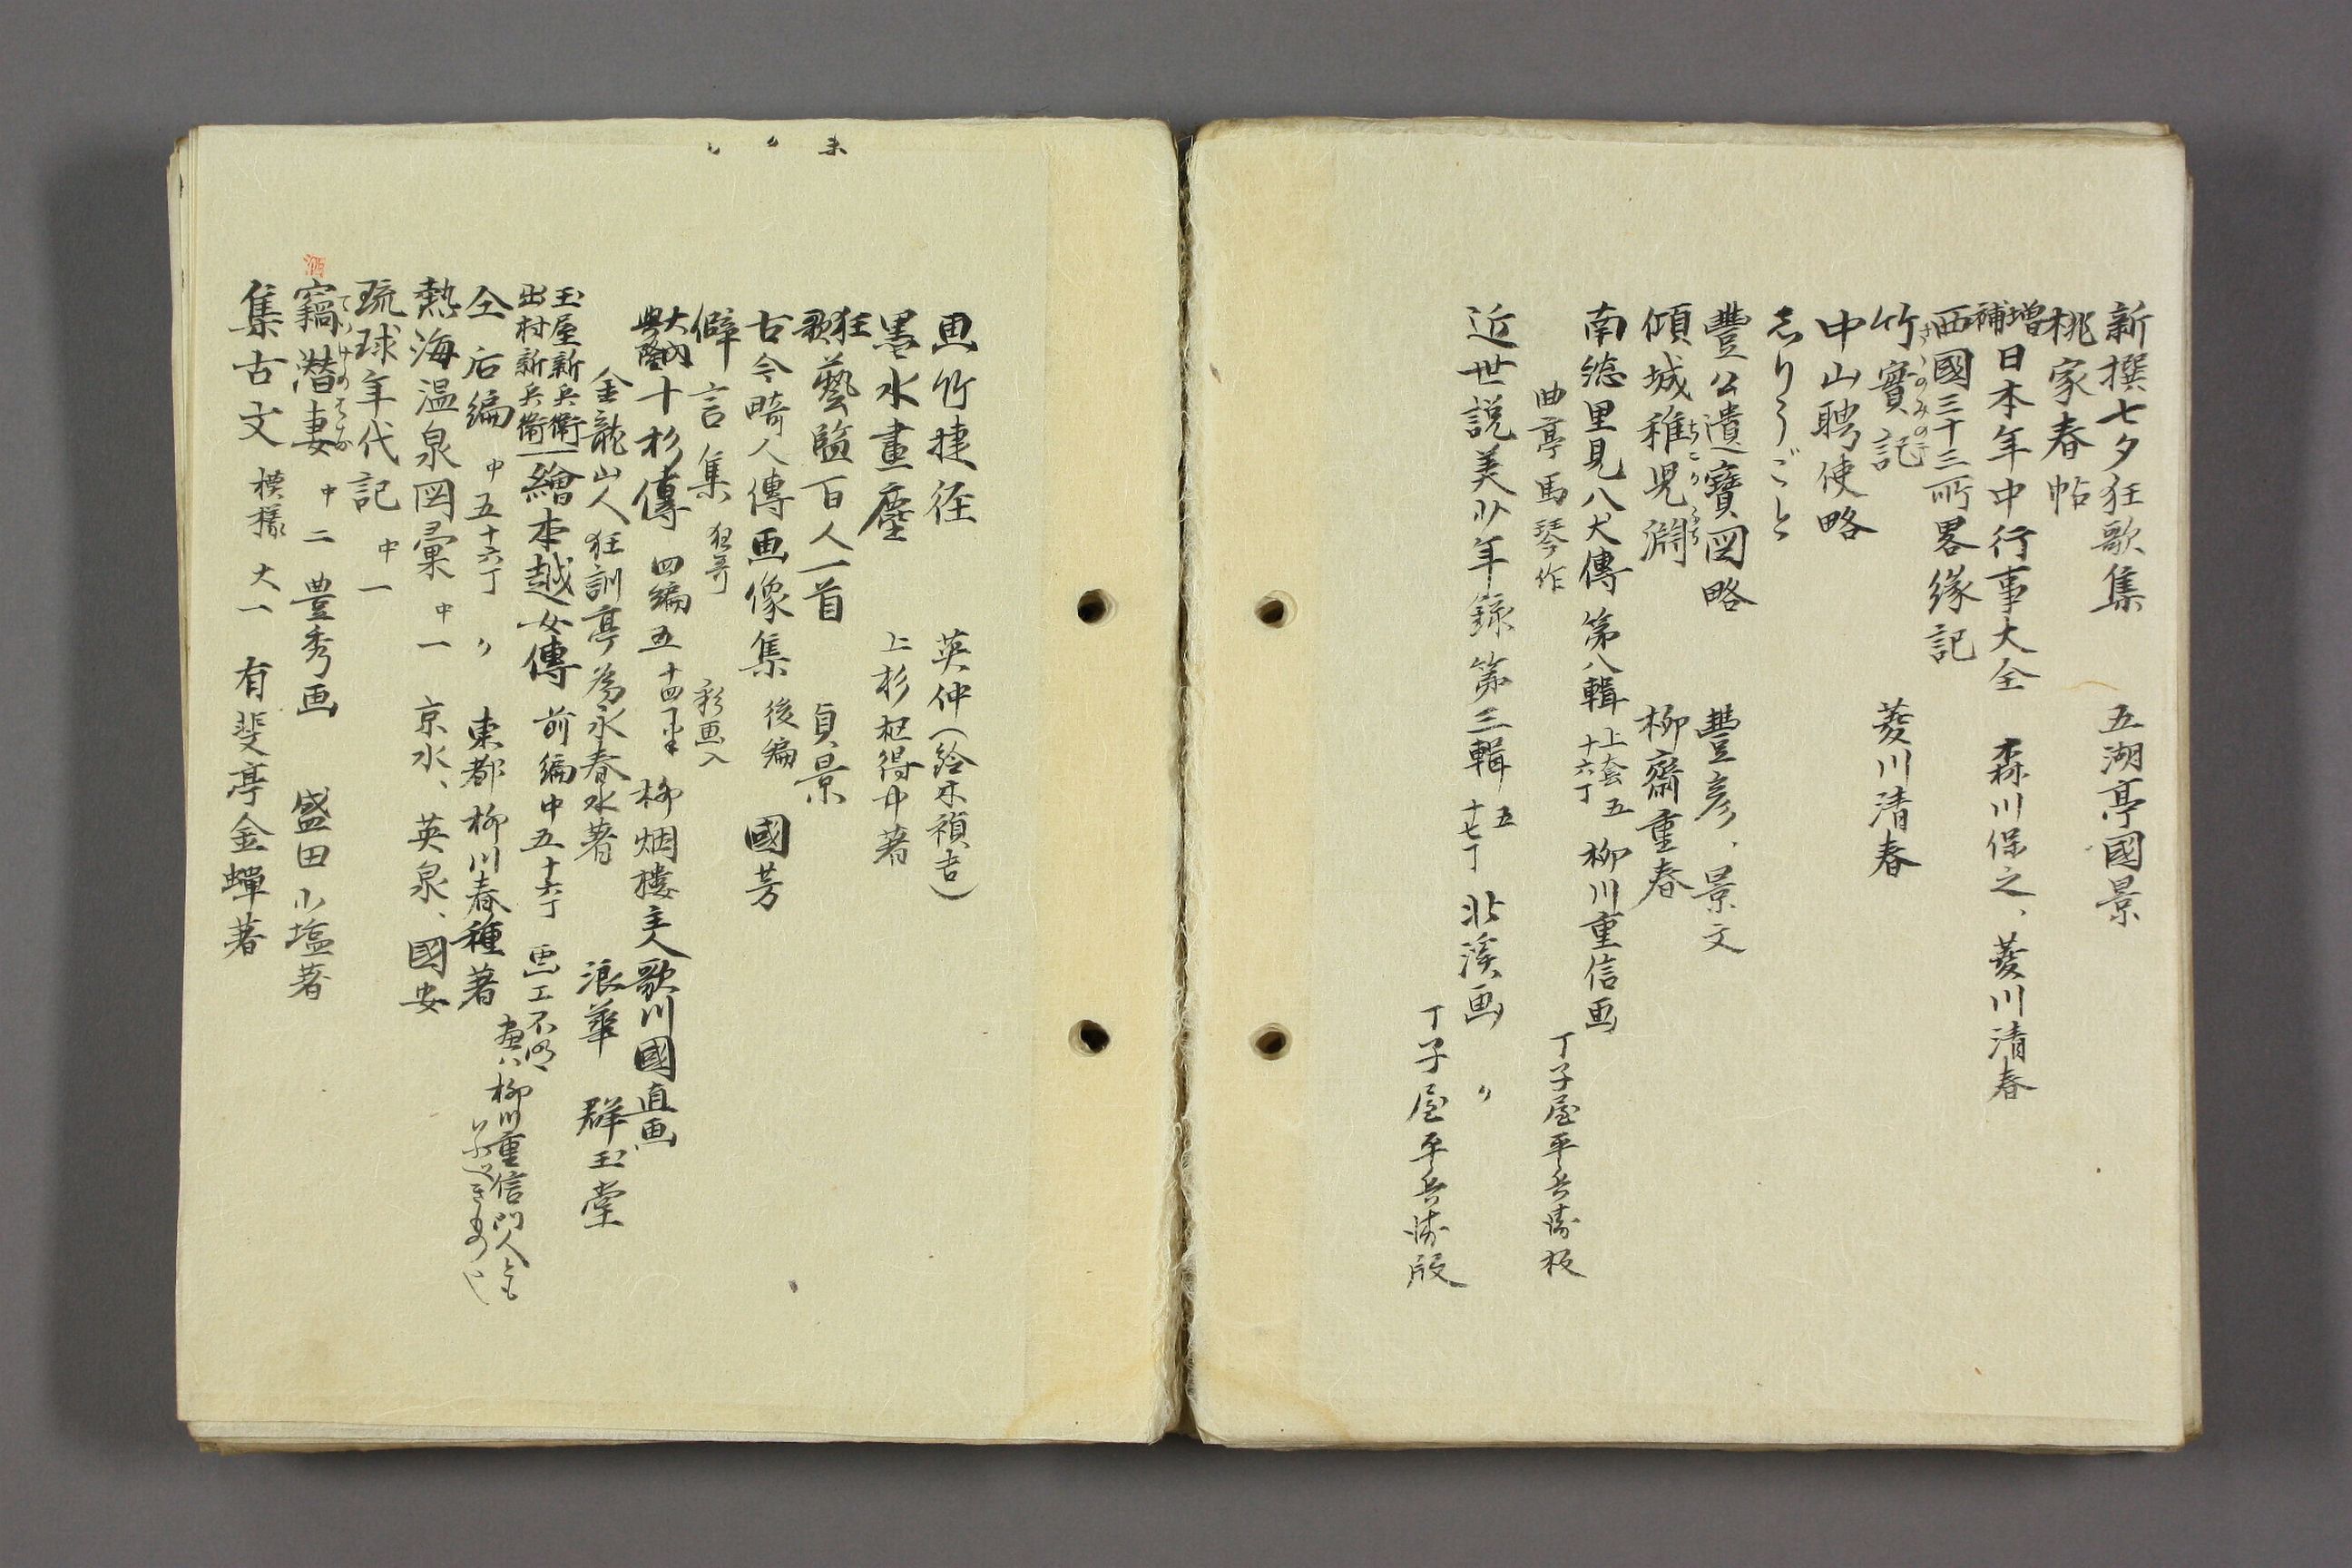 新撰七夕狂歌集　五湖亭國景
桃家春帖
増補日本年中行事大全　森川保之、菱川清春
西國三十三所畧縁記
竹實記　菱川清春
中山聘使略
しりうごと
豐公遺寳図略　豐彦、景文
傾城稚児淵　柳齋重春
南総里見八犬傳 第八輯 上套五 十六丁 柳川重信画
曲亭馬琴作　丁子屋平兵衛板
近世説美少年録 第三輯 五 十七丁 北溪画 〃
丁子屋平兵衛版
画竹捷徑　英仲（鈴木禎吉）
墨水畫塵　上杉
狂歌藝監百人一首　貞景
古今畸人傳画像集 後編　國芳
僻言集 狂哥　彩画入
大内興隆十杉傳 四編 五 十四丁半 柳烟楼主人 歌川國直画
金龍山人 狂訓亭為永春水著　浪華 群玉堂
玉屋新兵衛 出村新兵衛 繪本越女傳 前編 中五 十六丁 画工不明
画ハ柳川重信門人とも
いふべきものか
仝 后編 中五 十六丁 〃 東都 柳川春種著
熱海温泉図彙 中一　京水、英泉、國安
琉球年代記 中一
竊潜妻 中二 豊秀画　盛田小塩著
集古文 模様 大一　有斐亭金蟬著